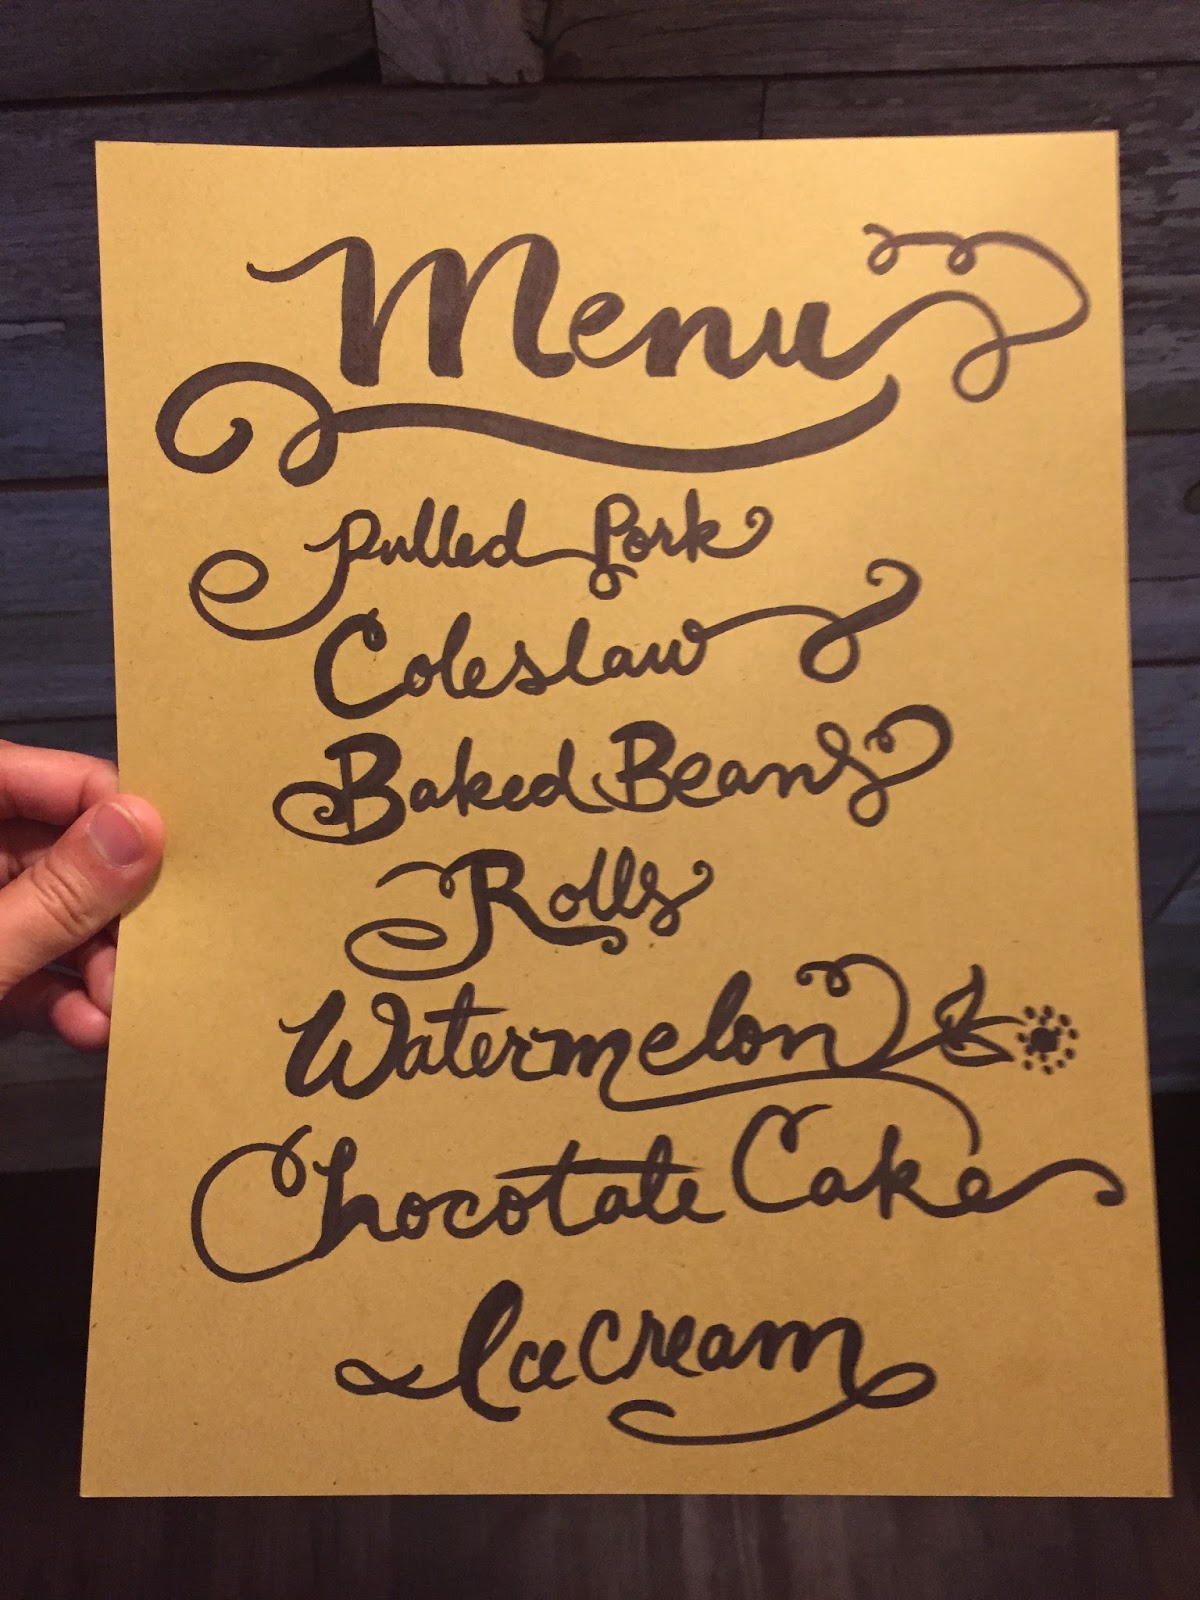 Menu
Pulled Pork
Coleslaw
Baked Beans
Rolls
Watermelon
Chocolate Cake
Ice Cream